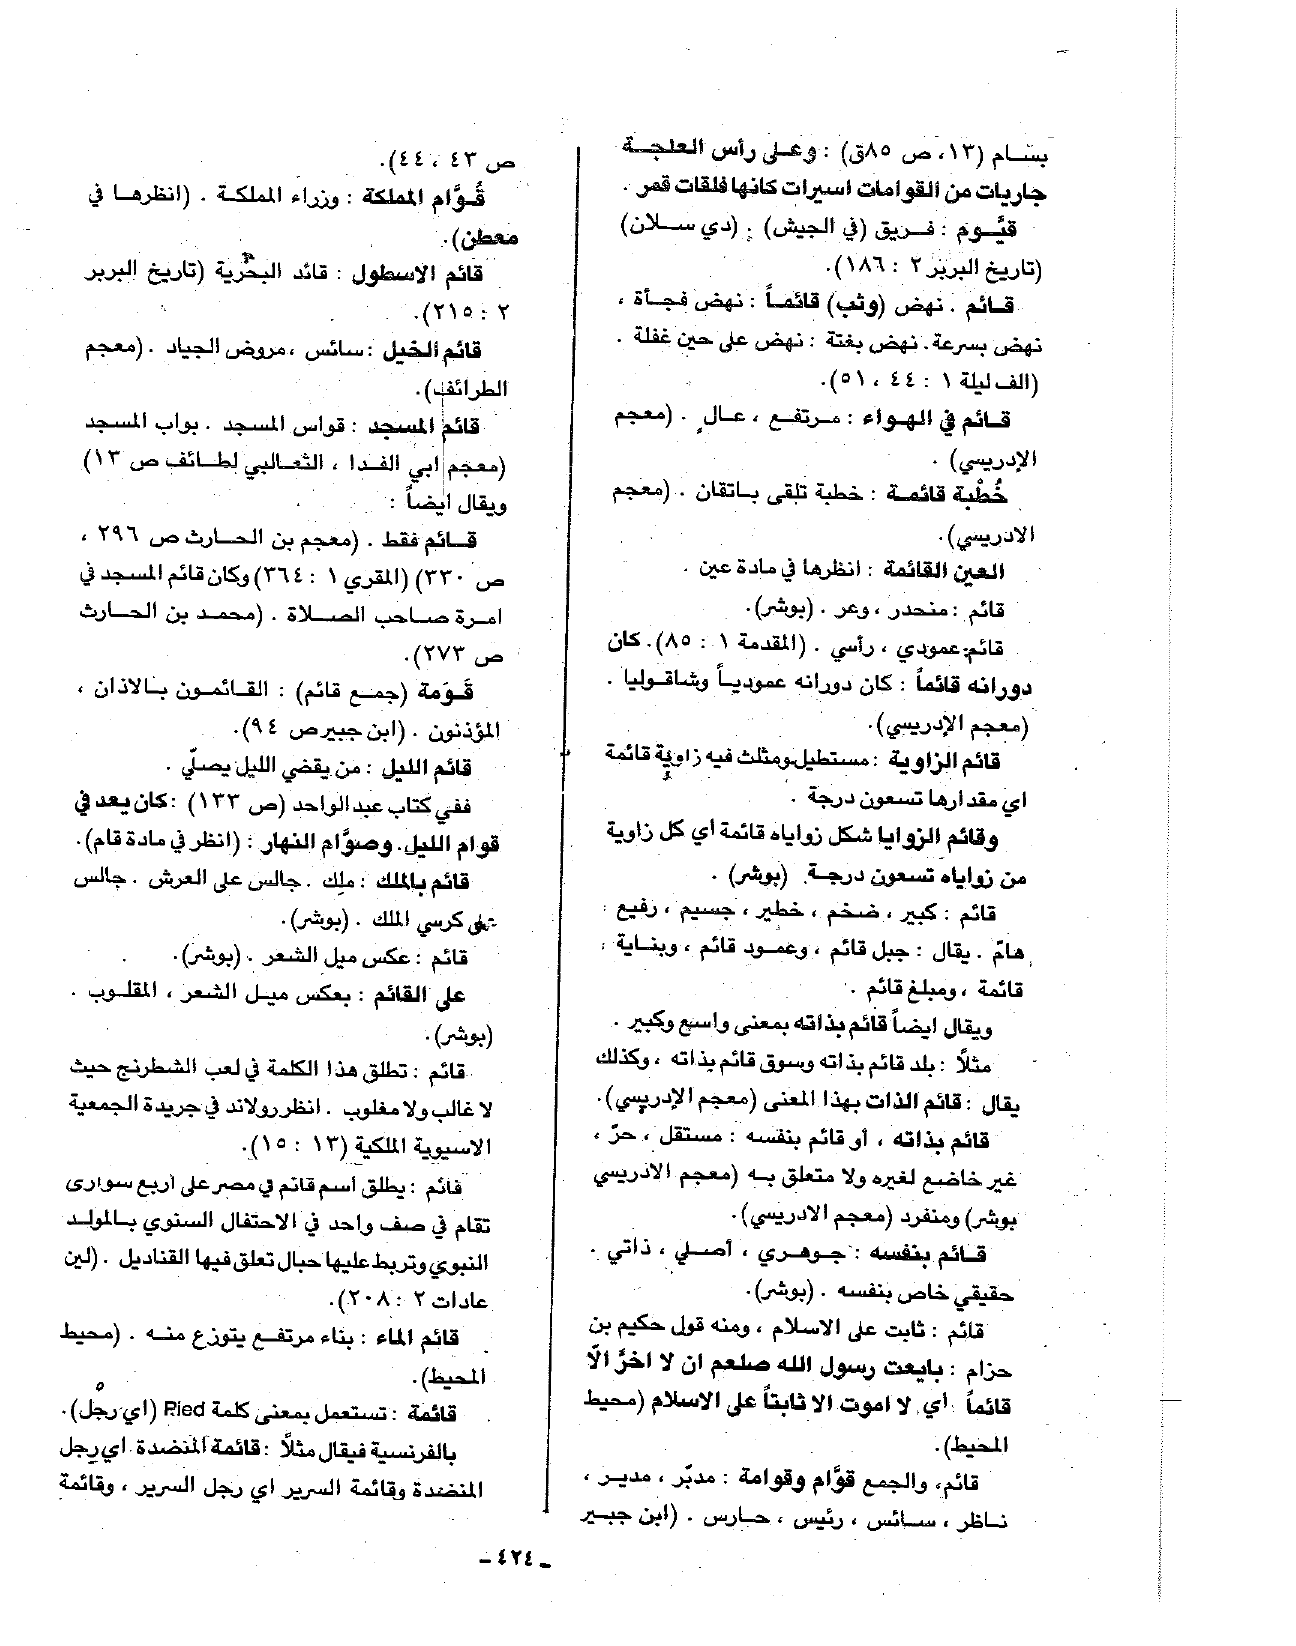 بسّام (١٣، ص ٨٥ق) : وعلى رأس العلجة
جاريات من القوامات اسيرات كانها فلقات قمر .
قيُّوم : فريق (في الجيش) . (دي سلان)
(تاريخ البربر ٢ : ١٨٦).
قائم . نهض (وثب) قائماً : نهض فجأة ،
نهض بسرعة. نهض بغتة : نهض على حين غفلة .
(الف ليلة ١ : ٤٤ ، ٥١).
قائم في الهواء : مرتفع ، عالٍ . (معجم
الإدريسي) .
خُطْبة قائمة : خطبة تلقى باتقان . (معجم
الادريسي).
العين القائمة : انظرها في مادة عين .
قائم : منحدر ، وعر . (بوشر).
قائم: عمودي ، رأسي . (المقدمة ١ : ٨٥). كان
دورانه قائماً : كان دورانه عمودياً وشاقوليا .
(معجم الإدريسي).
قائم الزاوية : مستطيل ومثلث فيه زاوية قائمة
اي مقدارها تسعون درجة .
وقائم الزوايا شكل زواياه قائمة أي كل زاوية
من زواياه تسعون درجة. (بوشر) .
قائم : كبير ، ضخم ، خطير ، جسيم ، رفيع :
هامّ . يقال : جبل قائم ، وعمود قائم ، وبناية :
قائمة ، ومبلغ قائم .
ويقال ايضاً قائم بذاته بمعنى واسع وكبير .
مثلاً : بلد قائم بذاته وسوق قائم بذاته ، وكذلك
يقال : قائم الذات بهذا المعنى (معجم الإدريسي).
قائم بذاته ، أو قائم بنفسه : مستقل ، حرّ ،
غير خاضع لغيره ولا متعلق به (معجم الادريسي
بوشر) ومنفرد (معجم الادريسي).
قائم بنفسه : جوهري ، أصلي ، ذاتي .
حقيقي خاص بنفسه . (بوشر).
قائم : ثابت على الاسلام ، ومنه قول حكيم بن
حزام : بايعت رسول الله صلعم ان لا اخرَّ الاّ
قائماً اي لا اموت الا ثابتاً على الاسلام (محيط
المحيط).
قائم، والجمع قوَّام وقوامة : مدبّر ، مدير ،
ناظر ، سائس ، رئيس ، حارس . (ابن جبير
ص ٤٣ ، ٤٤).
قُوَّام المملكة : وزراء المملكة . (انظرها في
معطن).
قائم الاسطول : قائد البحرية (تاريخ البربر
٢ : ٢١٥).
قائم الخيل : سائس ، مروض الجياد . (معجم
الطرائف).
قائم المسجد : قواس المسجد . بواب المسجد
(معجم ابي الفدا ، الثعالبي لطائف ص ١٣)
ويقال ايضاً :
قائم فقط . (معجم بن الحارث ص ٢٩٦ ،
ص ٣٣٠) (المقري ١ : ٣٦٤) وكان قائم المسجد في
امرة صاحب الصلاة . (محمد بن الحارث
ص ٢٧٣).
قَوَمة (جمع قائم) : القائمون بالاذان ،
المؤذنون . (ابن جبير ص ٩٤).
قائم الليل : من يقضي الليل يصلّي .
ففي كتاب عبد الواحد (ص ١٣٣) : كان يعد في
قوام الليل. وصوَّام النهار : (انظر في مادة قام).
قائم بالملك : ملِك . جالس على العرش . جالس
على كرسي الملك . (بوشر).
قائم : عكس ميل الشعر . (بوشر).
على القائم : بعكس ميل الشعر ، المقلوب .
(بوشر).
قائم : تطلق هذا الكلمة في لعب الشطرنج حيث
لا غالب ولا مغلوب . انظر رولاند في جريدة الجمعية
الاسيوية الملكية (١٣ : ١٥).
قائم : يطلق اسم قائم في مصر على أربع سوارى
تقام في صف واحد في الاحتفال السنوي بالمولد
النبوي وتربط عليها حبال تعلق فيها القناديل . (لين
عادات ٢ : ٢٠٨).
قائم الماء : بناء مرتفع يتوزع منه . (محيط
المحيط).
قائمة : تستعمل بمعنى كلمة Pied (اي رجل).
بالفرنسية فيقال مثلاً : قائمة المنضدة اي رجل
المنضدة وقائمة السرير اي رجل السرير ، وقائمة
- ٤٢٤ -